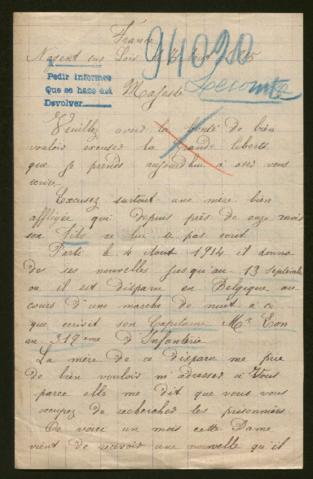 France
94020
Nogent sur
Pedir informes
Que se hace así
Devolver
Lecomte
Majesté
Veuillez avoir la bonté de bien
vouloir excuser la grande liberté
que je prends aujourd'hui à osé vous
écrire.
Excusez surtout une mère bien
affligée qui depuis près de onze mois
son fils ne lui a pas écrit
Parti le 4 Août 1914 et donna
des ses nouvelles jusqu'au 13 septembre
ou il est disparu en Belgique au
cours d'une marche de nuit à ce
que écrivit son Capitaine Mr
au 319ème d'Infanterie
La mère de ce disparu me prie
de bien vouloir m'adresser à Vous
parce elle me dit que vous vous
occupez de rechercher les prisonniers
De voici un mois cette Dame
vient de recevoir une nouvelle qu'il